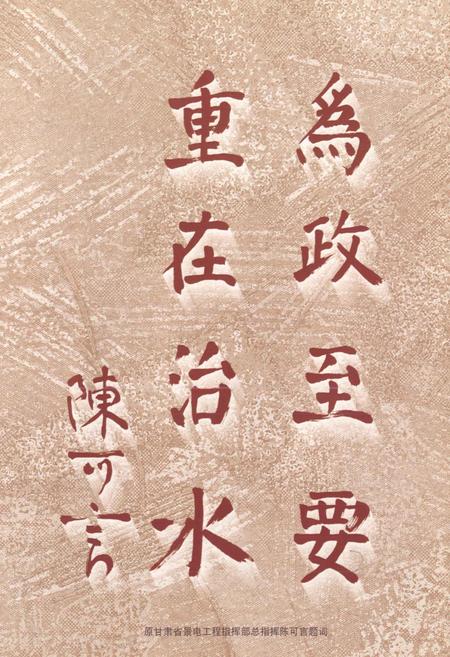 為政至要
重在治水
陳可言
原甘肃省景电工程指挥部总指挥陈可言题词